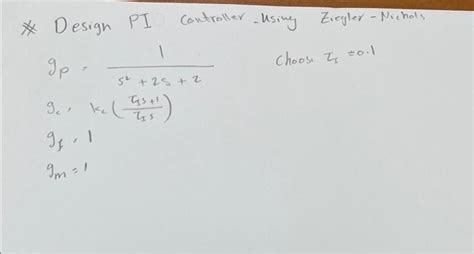 * Design PI Controller - Using Ziegler - Nichols
gp = 1 / s² + 2s + 2 Choose τI = 0.1
gc = kc ( τIs+1 / τIs )
gf = 1
gm = 1